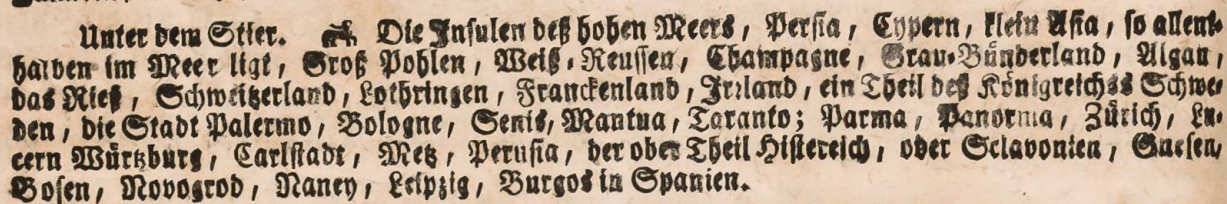 Unter dem Stier. Die Insulen deß hohen Meers, Persia, Cypern, klein Asia, so allent-
halben im Meer ligt, Groß Pohlen, Weiß-Reussen, Champagne, Grau-Bünderland, Algau,
das Rieß, Schweitzerland, Lothringen, Franckenland, Irrland, ein Theil deß Königreichs Schwe-
den, die Stadt Palermo, Bologne, Senis, Mantua, Taranto; Parma, Panorma, Zürich, Lu-
cern Würtzburg, Carlstadt, Metz, Perusia, der ober Theil Histereich, oder Sclavonien, Gnesen,
Bosen, Novogrod, Nancy, Leipzig, Burgos in Spanien.